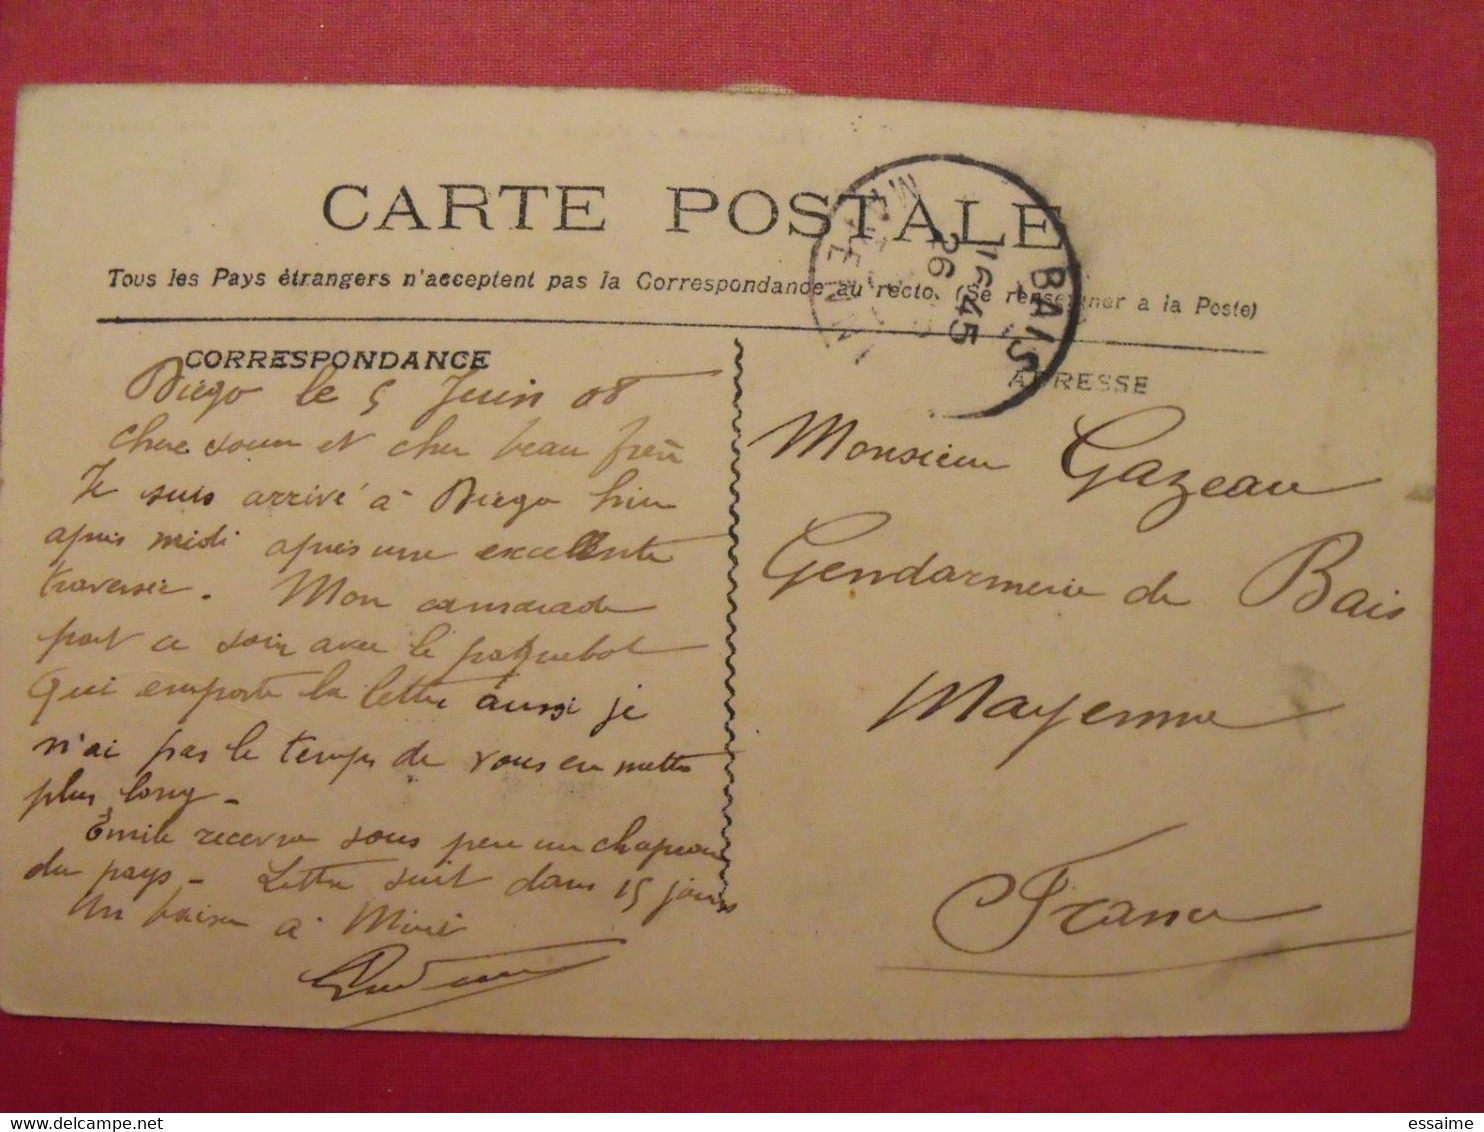 CARTE POSTALE
Tous les Pays étrangers n'acceptent pas la Correspondance au recto. (Se renseigner a la Poste)
CORRESPONDANCE
Diégo le 5 Juin 08
Chere soeur et cher beau frère
Je suis arrivé à Diégo hier
après midi après une excellente
traversée. Mon camarade
part ce soir avec le paquebot
qui emporte la lettre aussi je
n'ai pas le temps de vous en mettre
plus long -
Émile recevra sous peu un chapeau
du pays - Lettre suit dans 15 jours
Un baiser à Mimi
ADRESSE
Monsieur Gazeau
Gendarmerie de Bais
Mayenne
France
BAIS
16 45
26
MAYENNE
www.delcampe.net
essaime